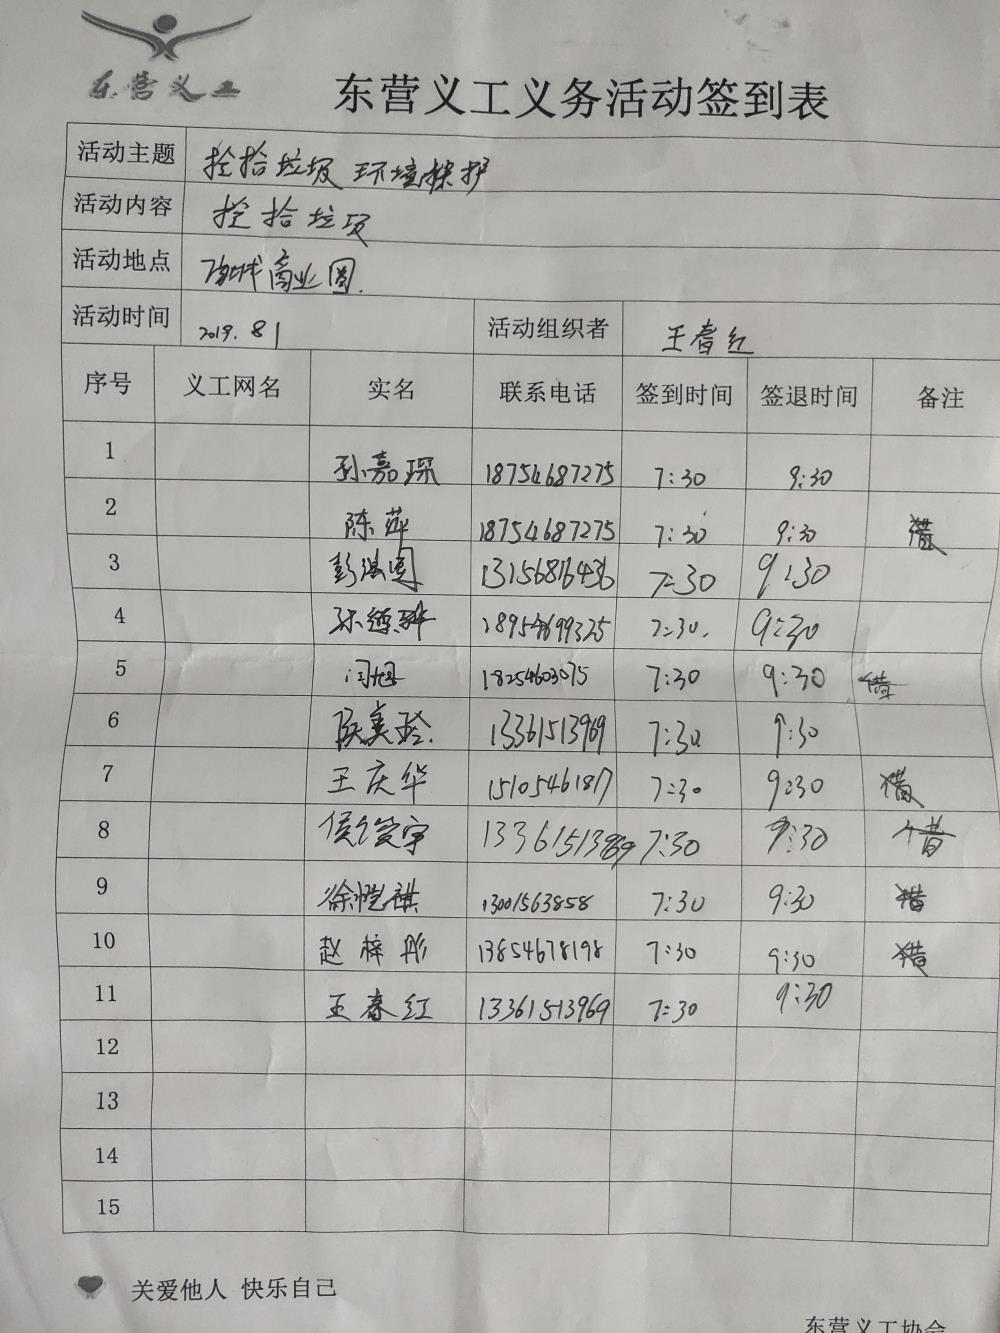 东营义工
东营义工义务活动签到表
活动主题 捡拾垃圾 环境保护
活动内容 捡拾垃圾
活动地点 商业圈
活动时间 2019.8 1 活动组织者 王春红
序号 义工网名 实名 联系电话 签到时间 签退时间 备注
1 孙嘉琛 18754687275 7:30 9:30
2 陈萍 18754687275 7:30 9:30 借
3 13156816436 7:30 9:30
4 7:30. 9:30
5 闫旭 18254603075 7:30 9:30 借
6 美玲. 13361513969 7:30 9:30
7 王庆华 15105461817 7:30 9:30 借
8 13361513969 7:30 9:30 借
9 徐恺祺 13001563858 7:30 9:30 借
10 赵梓彤 13854678198 7:30 9:30 借
11 王春红 13361513969 7:30 9:30
12
13
14
15
关爱他人 快乐自己
东营义工协会